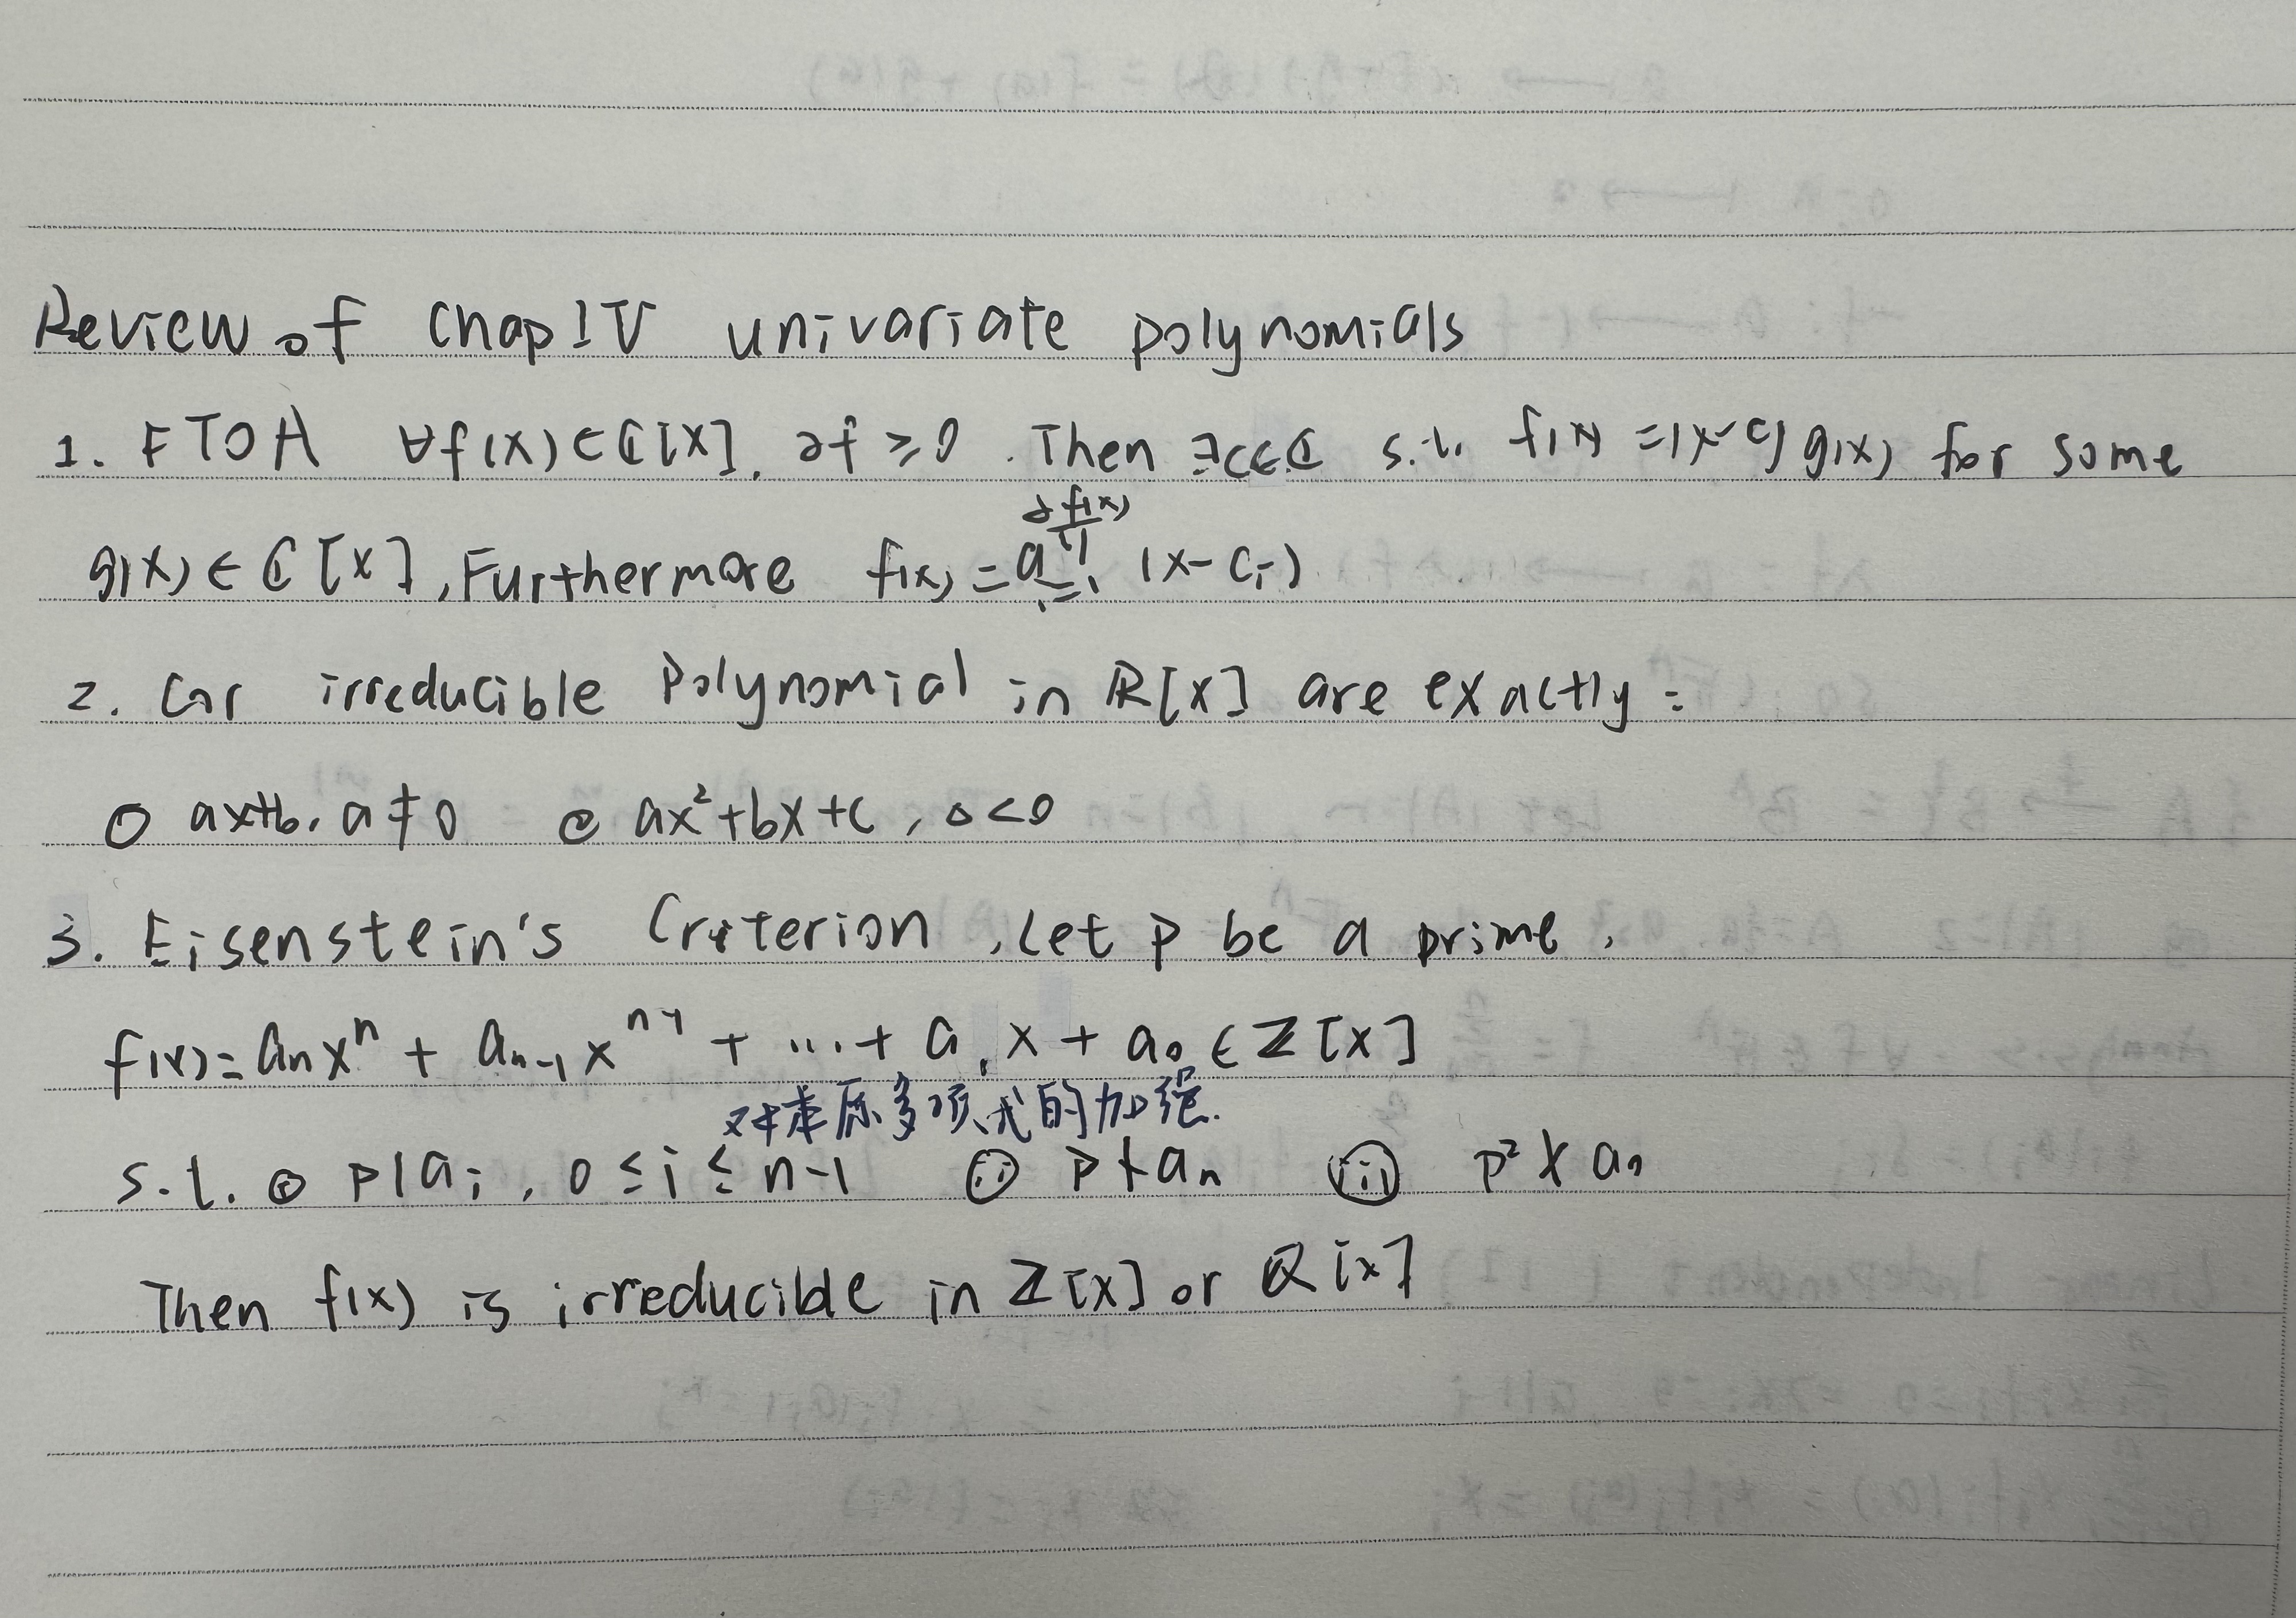 Review of Chap IV univariate polynomials
1. FTOA ∀f(x)∈ℂ[x], ∂f ≥ 0. Then ∃c∈ℂ s.t. f(x) = (x-c) g(x) for some
g(x) ∈ ℂ[x], Furthermore f(x) = a ∏_{i=1}^{∂f(x)} (x-c_i)
2. Cor irreducible Polynomial in ℝ[x] are exactly:
① ax+b, a≠0 ② ax²+bx+c, Δ<0
3. Eisenstein's Criterion, Let p be a prime,
f(x) = a_n x^n + a_{n-1} x^{n-1} + ... + a_1 x + a_0 ∈ ℤ[x]
对本原多项式的加强.
s.t. ⓘ p|a_i, 0 ≤ i ≤ n-1 (ii) p∤a_n (iii) p²∤a_0
Then f(x) is irreducible in ℤ[x] or ℚ[x]